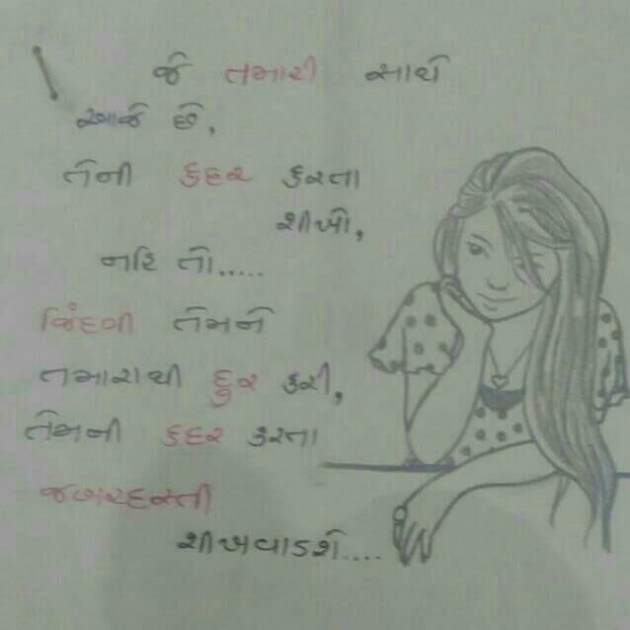 જે તમારી સાથે
આજે છે,
તેની કદર કરતા
શીખો,
નહિ તો.....
જિંદગી તેમને
તમારાથી દુર કરી,
તેમની કદર કરતા
જબરદસ્તી
શીખવાડશે....